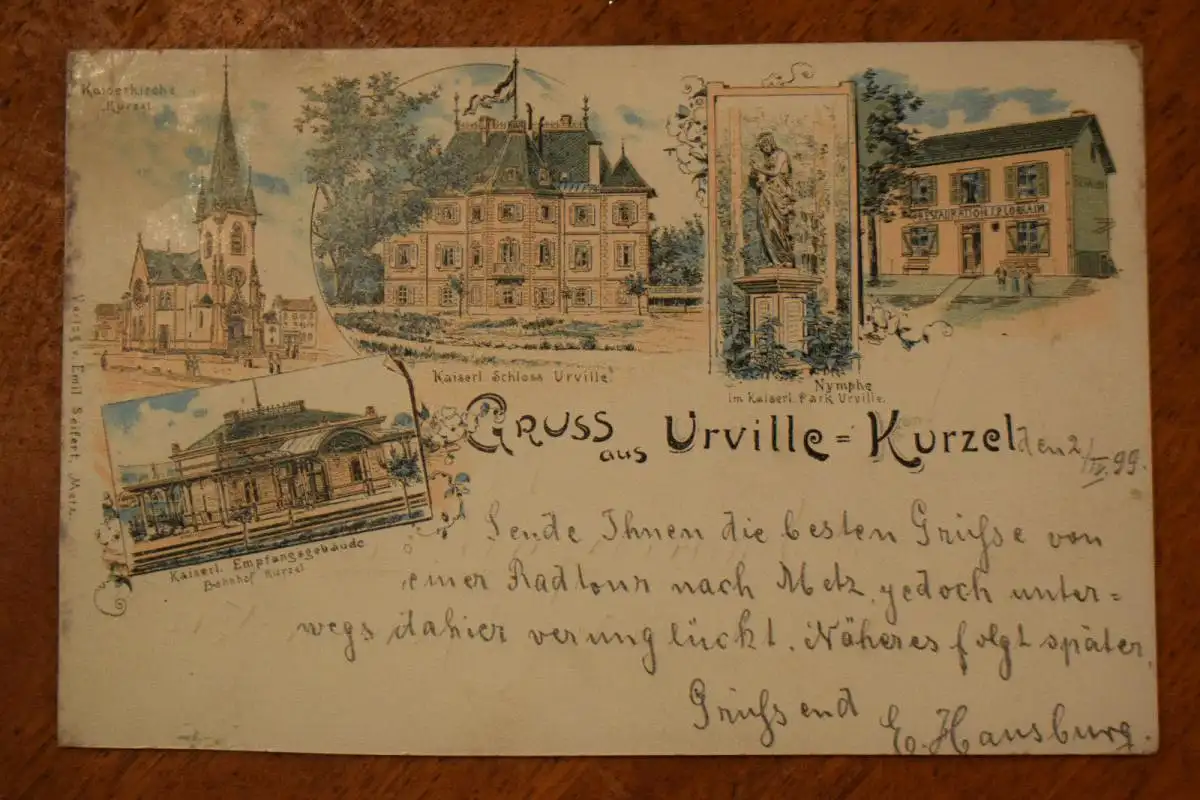 Kaiserkirche
Kurzel
Kaiserl. Schloss Urville
Nymphe
im Kaiserl. Park Urville.
RESTAURATION
Verlag v. Emil Seifert, Metz.
Kaiserl. Empfangsgebäude
Bahnhof Kurzel
Gruss aus Urville=Kurzel den 2/IV 99.
Sende Ihnen die besten Grüsse von
einer Radtour nach Metz, jedoch unter=
wegs dahier verunglückt. Näheres folgt später.
Grüssend
E. Hansburg.